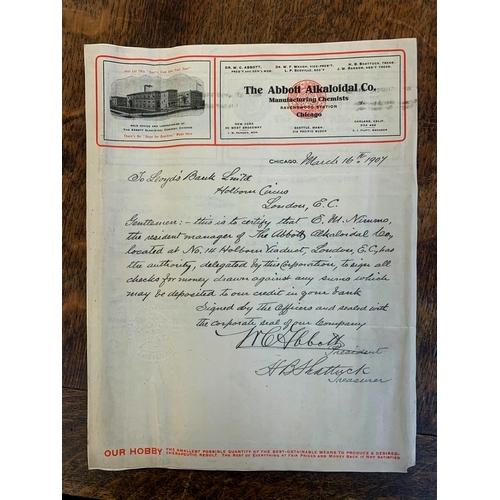 DR. W. C. ABBOTT,
PRES'T AND GEN'L MGR.
DR. W. F. WAUGH, VICE-PRES'T.
L. P. SCOVILLE, SEC'Y
H. B. SHATTUCK, TREAS.
J. W. RANSON, ASS'T TREAS.
The Abbott Alkaloidal Co.
Manufacturing Chemists
RAVENSWOOD STATION
Chicago
NEW YORK
SEATTLE, WASH.
OAKLAND, CALIF.
HEAD OFFICE AND LABORATORIES OF
THE ABBOTT ALKALOIDAL COMPANY, CHICAGO
CHICAGO, March 16th 1907
To Lloyds Bank Limtd
Holborn Circus
London, E.C.
Gentlemen:- this is to certify that E. M. Nimmo,
the resident manager of The Abbott Alkaloidal Co,
located at No. 16 Holborn Viaduct, London, E.C, has
the authority, delegated by this Corporation, to sign all
checks for money drawn against any sums which
may be deposited to our credit in your bank
Signed by the Officers and sealed with
the corporate seal of our Company
W C Abbott
President
H B Shattuck
Treasurer
OUR HOBBY THE SMALLEST POSSIBLE QUANTITY OF THE BEST-OBTAINABLE MEANS TO PRODUCE A DESIRED
THERAPEUTIC RESULT. THE BEST OF EVERYTHING AT FAIR PRICES AND MONEY BACK IF NOT SATISFIED